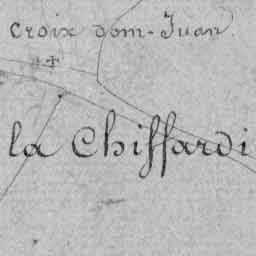 Croix dom-Juan.
la Chiffardi